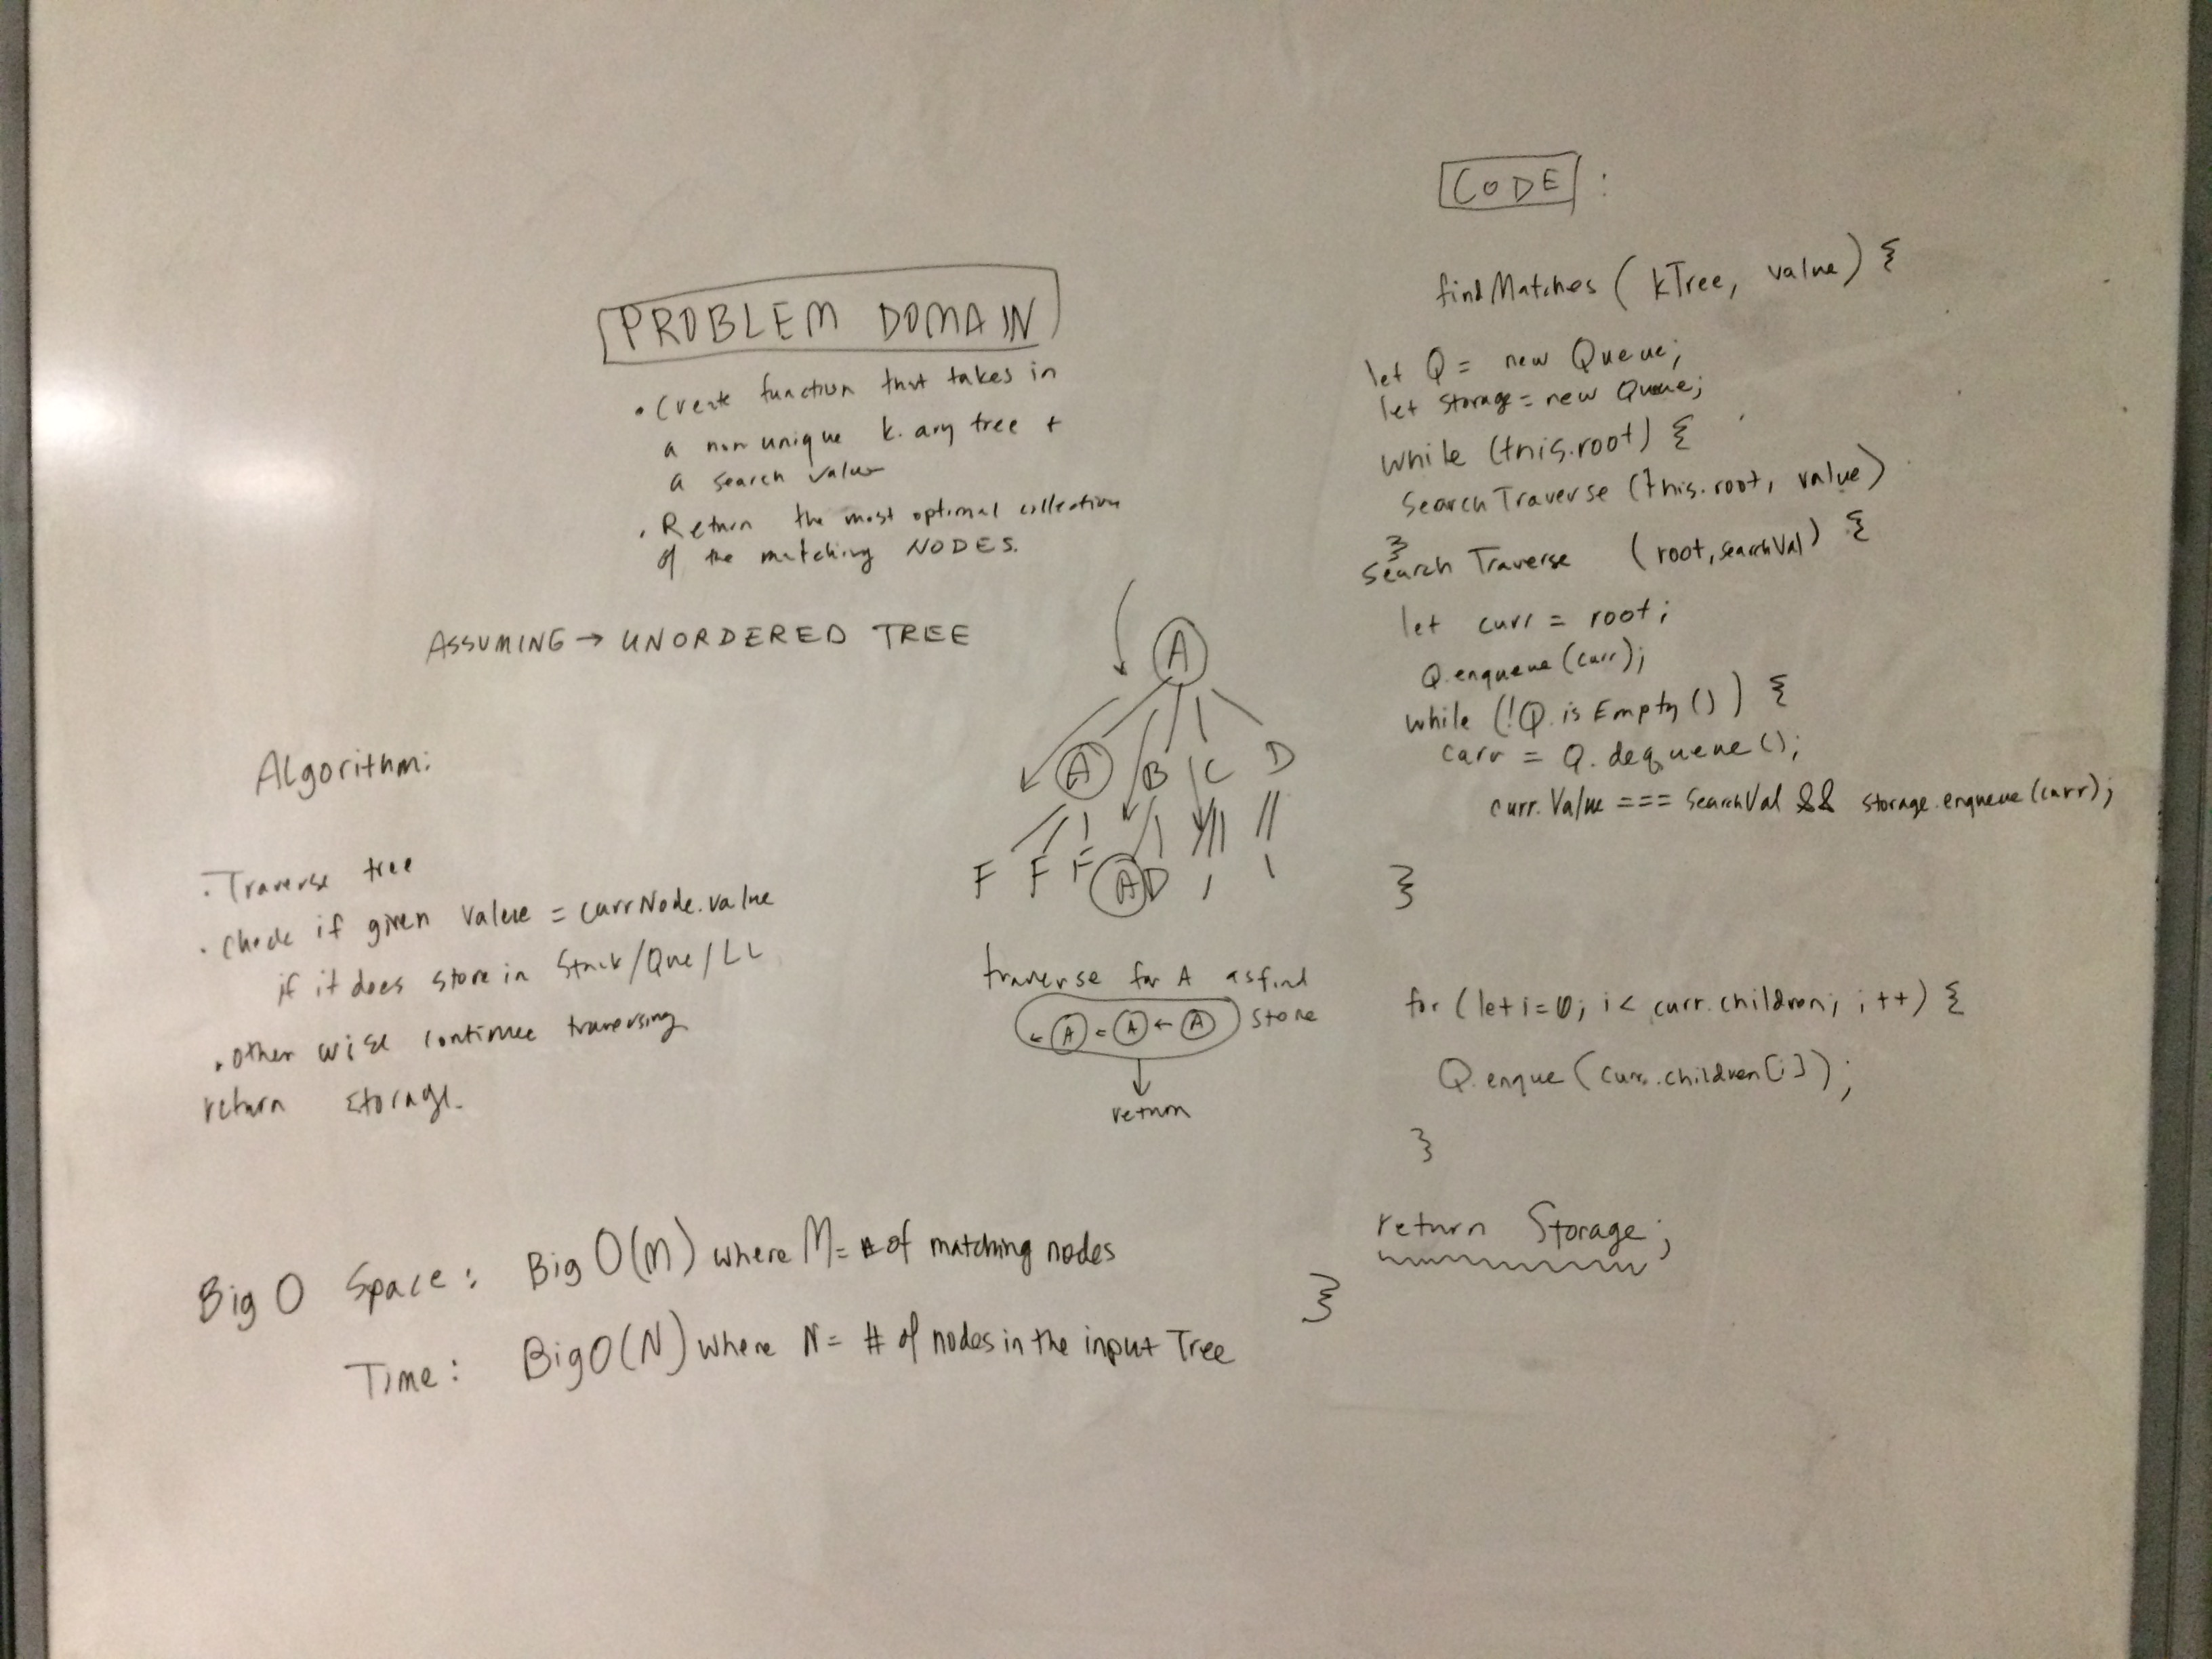 PROBLEM DOMAIN
• Create function that takes in
a non unique k-ary tree +
a search value
• Return the most optimal collection
of the matching NODES.
ASSUMING → UNORDERED TREE
Algorithm:
• Traverse tree
• check if given value = currNode.value
if it does store in Stack/Que/LL
• other wise continue traversing
return storage.
A
A B C D
F F F A D
traverse for A as find
A A A store
return
Big O Space: Big O(M) where M = # of matching nodes
Time: Big O(N) where N = # of nodes in the input Tree
CODE:
findMatches (kTree, value) {
let Q = new Queue;
let storage = new Queue;
while (this.root) {
searchTraverse (this.root, value)
}
search Traverse (root, searchVal) {
let curr = root;
Q.enqueue(curr);
while (!Q.isEmpty()) {
curr = Q.dequeue();
curr.value === searchVal && storage.enqueue(curr);
}
for (let i=0; i< curr.children; i++) {
Q.enque(curr.children[i]);
}
return Storage;
}